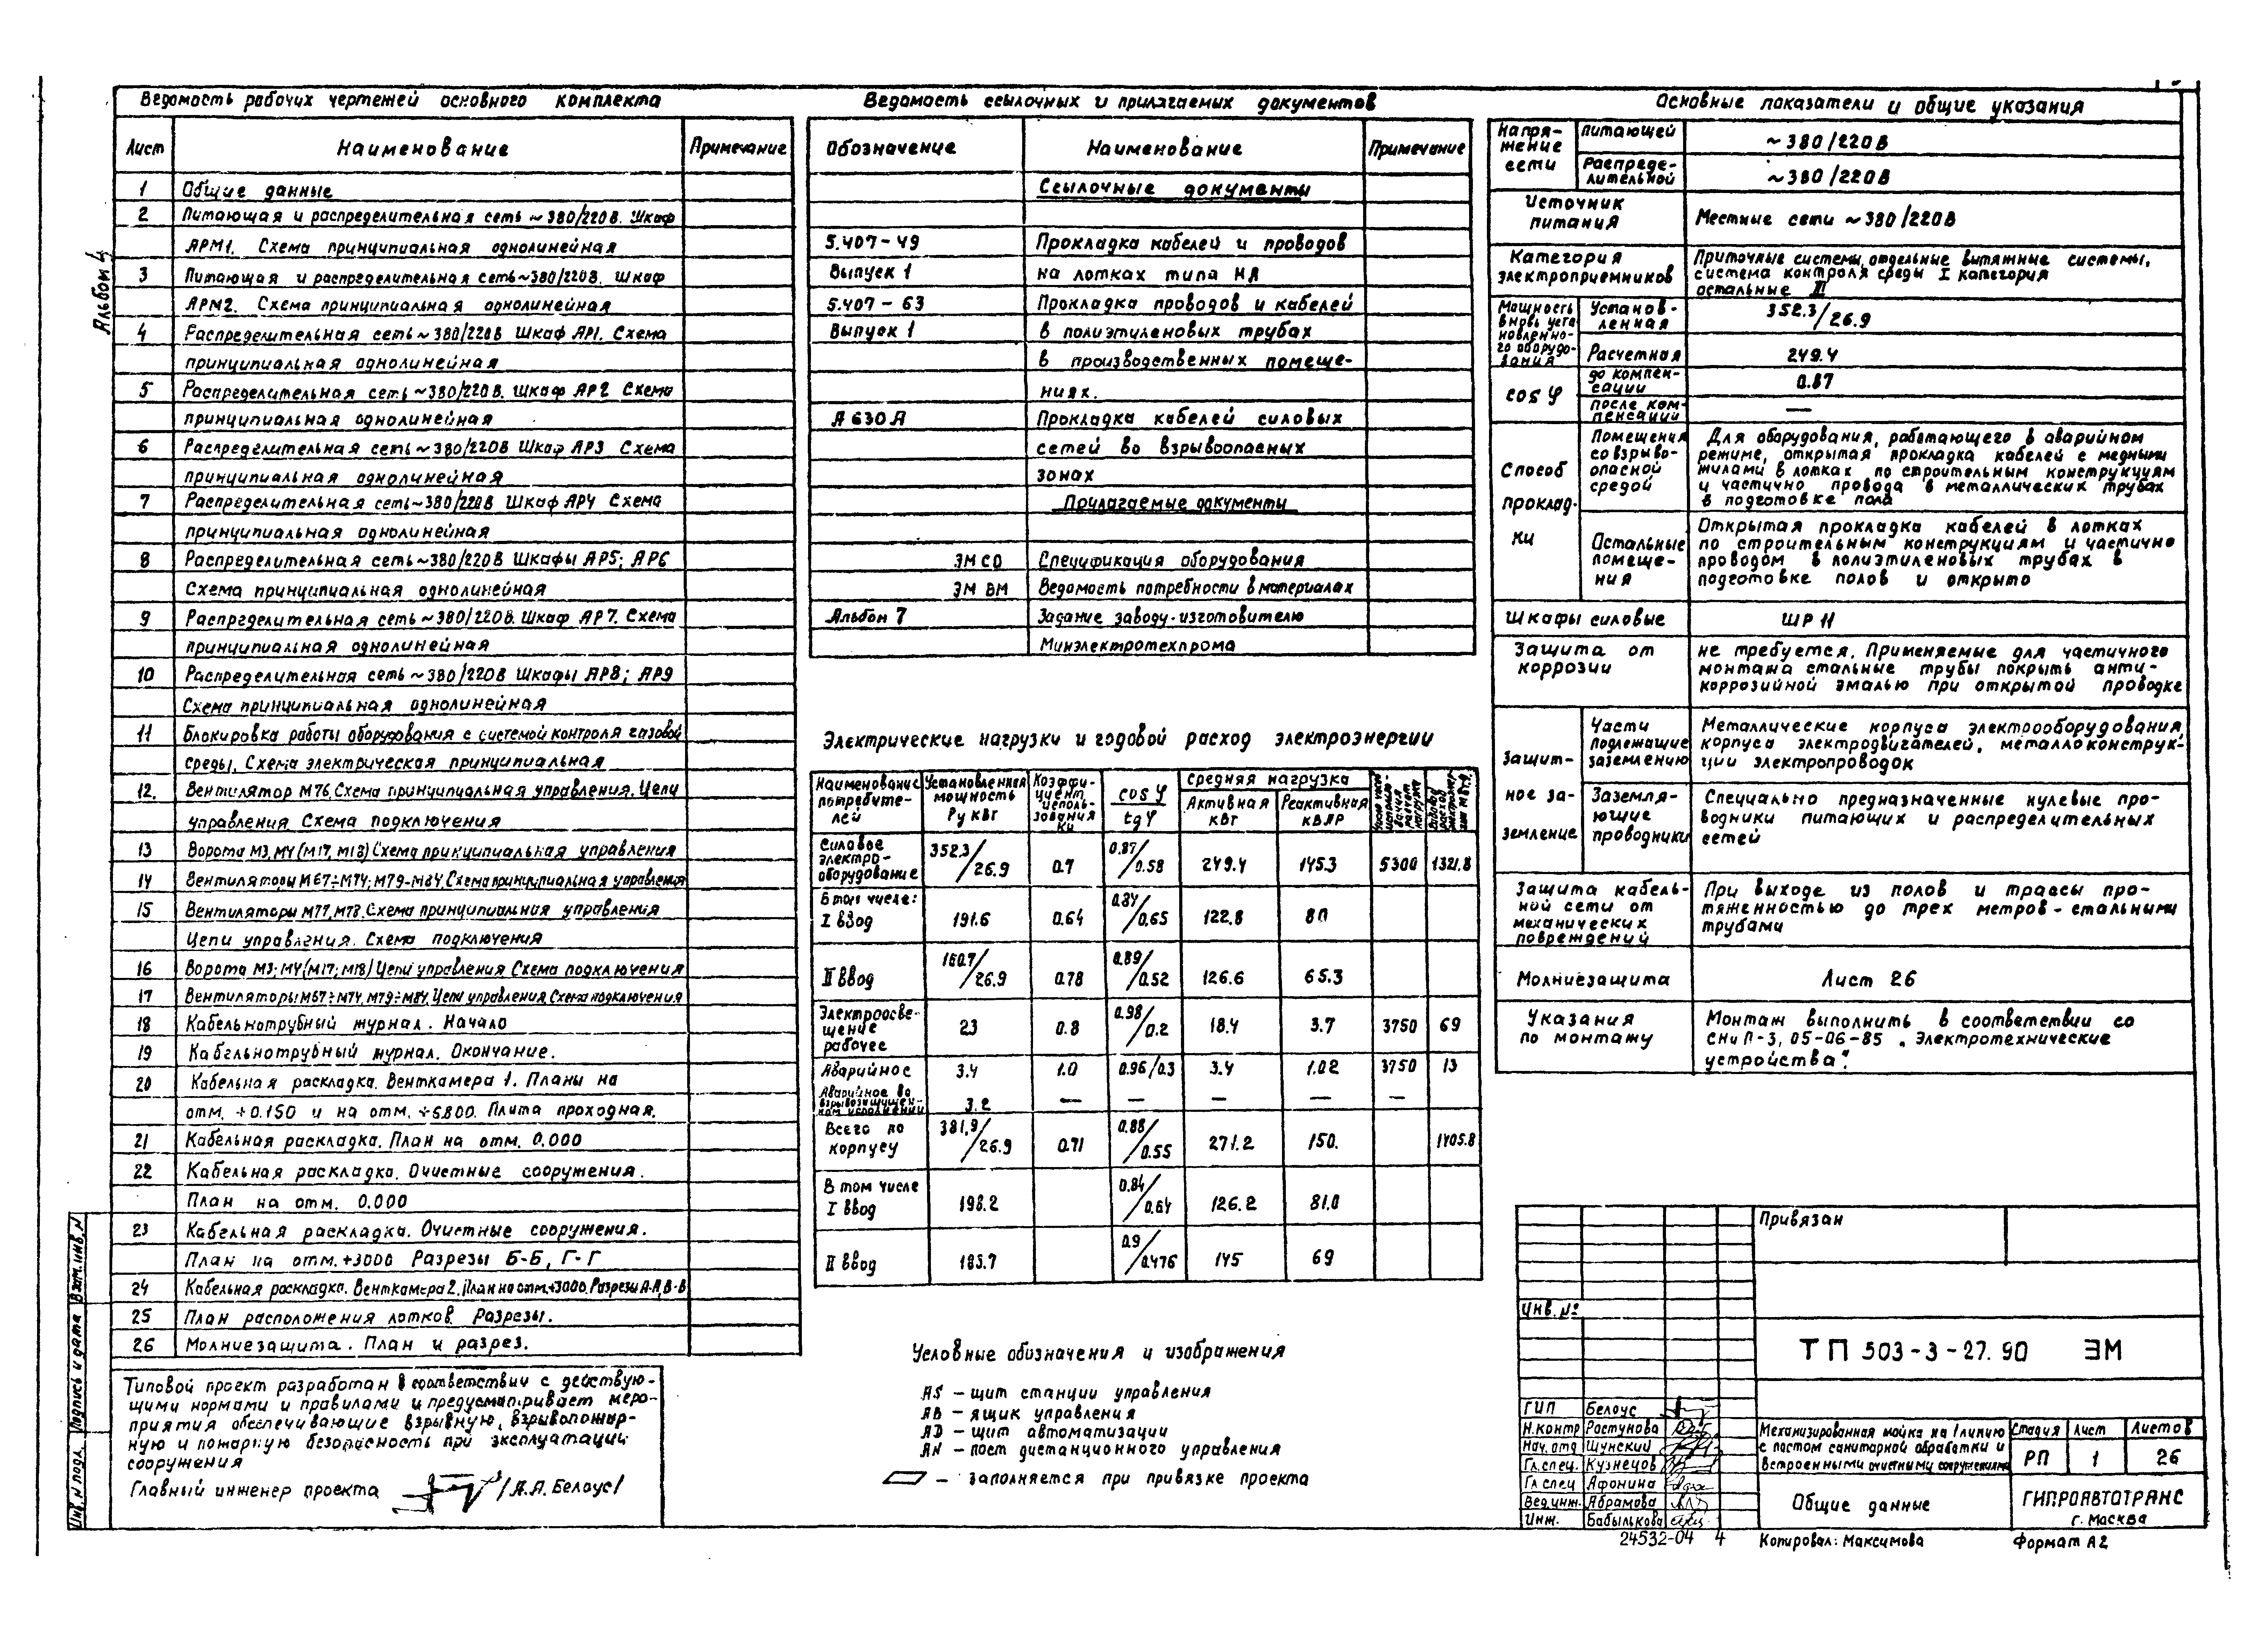 Альбом 4
Ведомость рабочих чертежей основного комплекта
Лист Наименование Примечание
1 Общие данные
2 Питающая и распределительная сеть ~380/220В. Шкаф
АРМ1. Схема принципиальная однолинейная
3 Питающая и распределительная сеть ~380/220В. Шкаф
АРМ2. Схема принципиальная однолинейная
4 Распределительная сеть ~380/220В Шкаф АР1. Схема
принципиальная однолинейная
5 Распределительная сеть ~380/220В. Шкаф АР2 Схема
принципиальная однолинейная
6 Распределительная сеть ~380/220В Шкаф АР3 Схема
принципиальная однолинейная
7 Распределительная сеть ~380/220В Шкаф АР4 Схема
принципиальная однолинейная
8 Распределительная сеть ~380/220В Шкафы АР5; АР6
Схема принципиальная однолинейная
9 Распределительная сеть ~380/220В. Шкаф АР7. Схема
принципиальная однолинейная
10 Распределительная сеть ~380/220В Шкафы АР8; АР9
Схема принципиальная однолинейная
11 Блокировка работы оборудования с системой контроля газовой
среды. Схема электрическая принципиальная
12. Вентилятор М76. Схема принципиальная управления. Цепи
управления. Схема подключения
13 Ворота М3, М4 (М17, М18) Схема принципиальная управления
14 Вентиляторы М67÷М74; М79-М84 Схема принципиальная управления
15 Вентиляторы М77, М78. Схема принципиальная управления
Цепи управления. Схема подключения
16 Ворота М3; М4 (М17; М18) Цепи управления Схема подключения
17 Вентиляторы М67÷М74, М79÷М84. Цепи управления. Схема подключения
18 Кабельнотрубный журнал. Начало
19 Кабельнотрубный журнал. Окончание.
20 Кабельная раскладка. Венткамера 1. Планы на
отм. +0.150 и на отм. +5.800. Плита проходная.
21 Кабельная раскладка. План на отм. 0.000
22 Кабельная раскладка. Очистные сооружения.
План на отм. 0.000
23 Кабельная раскладка. Очистные сооружения.
План на отм. +3000 Разрезы Б-Б, Г-Г
24 Кабельная раскладка. Венткамера 2. План на отм. +3000. Разрезы А-А, В-В
25 План расположения лотков. Разрезы.
26 Молниезащита. План и разрез.
Типовой проект разработан в соответствии с действую-
щими нормами и правилами и предусматривает меро-
приятия обеспечивающие взрывную, взрывопожар-
ную и пожарную безопасность при эксплуатации
сооружения
Главный инженер проекта /А.А. Белоус/
Инв. N подл. Подпись и дата Взам. инв. N
Ведомость ссылочных и прилагаемых документов
Обозначение Наименование Примечание
Ссылочные документы
5.407-49 Прокладка кабелей и проводов
Выпуск 1 на лотках типа НЛ
5.407-63 Прокладка проводов и кабелей
Выпуск 1 в полиэтиленовых трубах
в производственных помеще-
ниях.
А630А Прокладка кабелей силовых
сетей во взрывоопасных
зонах
Прилагаемые документы
ЭМ СО Спецификация оборудования
ЭМ ВМ Ведомость потребности в материалах
Альбом 7 Задание заводу-изготовителю
Минэлектротехпрома
Электрические нагрузки и годовой расход электроэнергии
Наименование потребите-лей Установленная мощность Ру кВт Коэффи-циент исполь-зования Ки cos φ / tg φ Средняя нагрузка Активная кВт Реактивная кВАР
Силовое электро-оборудование 352.3/26.9 0.7 0.87/0.58 249.4 145.3 5300 1321.8
В том числе:
I ввод 191.6 0.64 0.84/0.65 122.8 80
II ввод 160.7/26.9 0.78 0.89/0.52 126.6 65.3
Электроосве-щение рабочее 23 0.8 0.98/0.2 18.4 3.7 3750 69
Аварийное 3.4 1.0 0.96/0.3 3.4 1.02 3750 13
Аварийное во взрывозащищен-ном исполнении 3.2 — — — — —
Всего по корпусу 381.9/26.9 0.71 0.88/0.55 271.2 150. 1405.8
В том числе
I ввод 198.2 0.84/0.64 126.2 81.0
II ввод 183.7 0.9/0.476 145 69
Условные обозначения и изображения
AS – щит станции управления
АВ – ящик управления
АД – щит автоматизации
АН – пост дистанционного управления
– заполняется при привязке проекта
Основные показатели и общие указания
Напря-жение сети питающей ~380/220В
Распреде-лительной ~380/220В
Источник питания Местные сети ~380/220В
Категория электроприемников Приточные системы, отдельные вытяжные системы,
система контроля среды I категория
остальные III
Мощность вновь уста-новленно-го оборудо-вания Установ-ленная 352.3/26.9
Расчетная 249.4
cos φ до компен-сации 0.87
после ком-пенсации —
Способ проклад-ки
Помещения со взрыво-опасной средой
Для оборудования, работающего в аварийном
режиме, открытая прокладка кабелей с медными
жилами в лотках по строительным конструкциям
и частично провода в металлических трубах
в подготовке пола
Остальные помеще-ния
Открытая прокладка кабелей в лотках
по строительным конструкциям и частично
проводом в полиэтиленовых трубах в
подготовке полов и открыто
Шкафы силовые ШР 11
Защита от коррозии
не требуется. Применяемые для частичного
монтажа стальные трубы покрыть анти-
коррозийной эмалью при открытой проводке
Защит-ное за-земление
Части подлежащие заземлению
Металлические корпуса электрооборудования,
корпуса электродвигателей, металлоконструк-
ции электропроводок
Заземля-ющие проводники
Специально предназначенные нулевые про-
водники питающих и распределительных
сетей
Защита кабель-ной сети от механических повреждений
При выходе из полов и трассы про-
тяженностью до трех метров – стальными
трубами
Молниезащита Лист 26
Указания по монтажу
Монтаж выполнить в соответствии со
СНиП-3.05-06-85 „Электротехнические
устройства".
Привязан
Инв. №
ТП 503-3-27.90 ЭМ
ГИП Белоус
Н.контр Растунова
Нач. отд Шунский
Гл. спец. Кузнецов
Гл спец Афонина
Вед.инж. Абрамова
Инж. Бабылькова
Механизированная мойка на 1 линию
с постом санитарной обработки и
встроенными очистными сооружениями
Стадия Лист Листов
РП 1 26
Общие данные
ГИПРОАВТОТРАНС
г. Москва
24532-04 4 Копировал: Максимова Формат А2